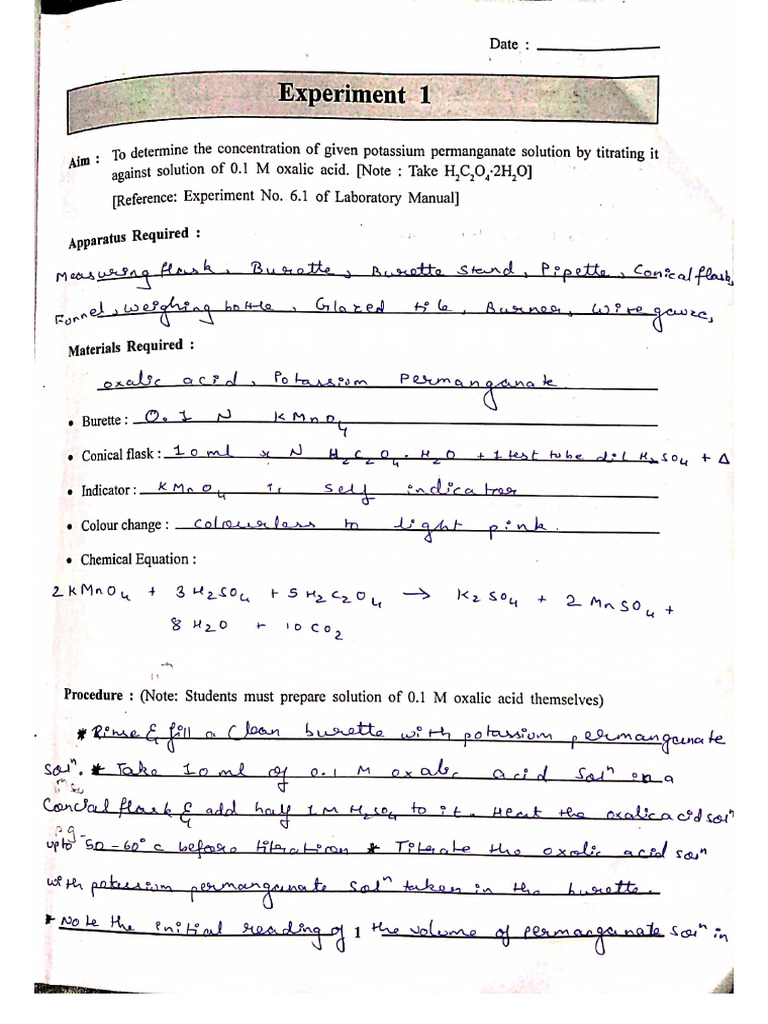 Date :
Experiment 1
Aim : To determine the concentration of given potassium permanganate solution by titrating it
against solution of 0.1 M oxalic acid. [Note : Take H₂C₂O₄·2H₂O]
[Reference: Experiment No. 6.1 of Laboratory Manual]
Apparatus Required :
Measuring flask, Burette, Burette stand, Pipette, Conical flask,
Funnel, Weighing bottle, Glazed tile, Burner, Wire gauze,
Materials Required :
oxalic acid, Potassium Permanganate
• Burette : 0.1 N KMnO₄
• Conical flask : 10ml x N H₂C₂O₄·H₂O + 1 test tube dil H₂SO₄ + Δ
• Indicator : KMnO₄ is self indicator
• Colour change : colourless to light pink.
• Chemical Equation :
2KMnO₄ + 3H₂SO₄ + 5H₂C₂O₄ → K₂SO₄ + 2MnSO₄ +
8H₂O + 10CO₂
Procedure : (Note: Students must prepare solution of 0.1 M oxalic acid themselves)
* Rinse & fill a clean burette with potassium permanganate
solⁿ. * Take 10ml of 0.1 M oxalic acid solⁿ in a
Concial flask & add half 1M H₂SO₄ to it. Heat the oxalic acid solⁿ
upto 50-60°c before titeration * Titerate the oxalic acid solⁿ
with potassium permanganate solⁿ taken in the burette.
* Note the initial reading of the volume of permanganate solⁿ in
1